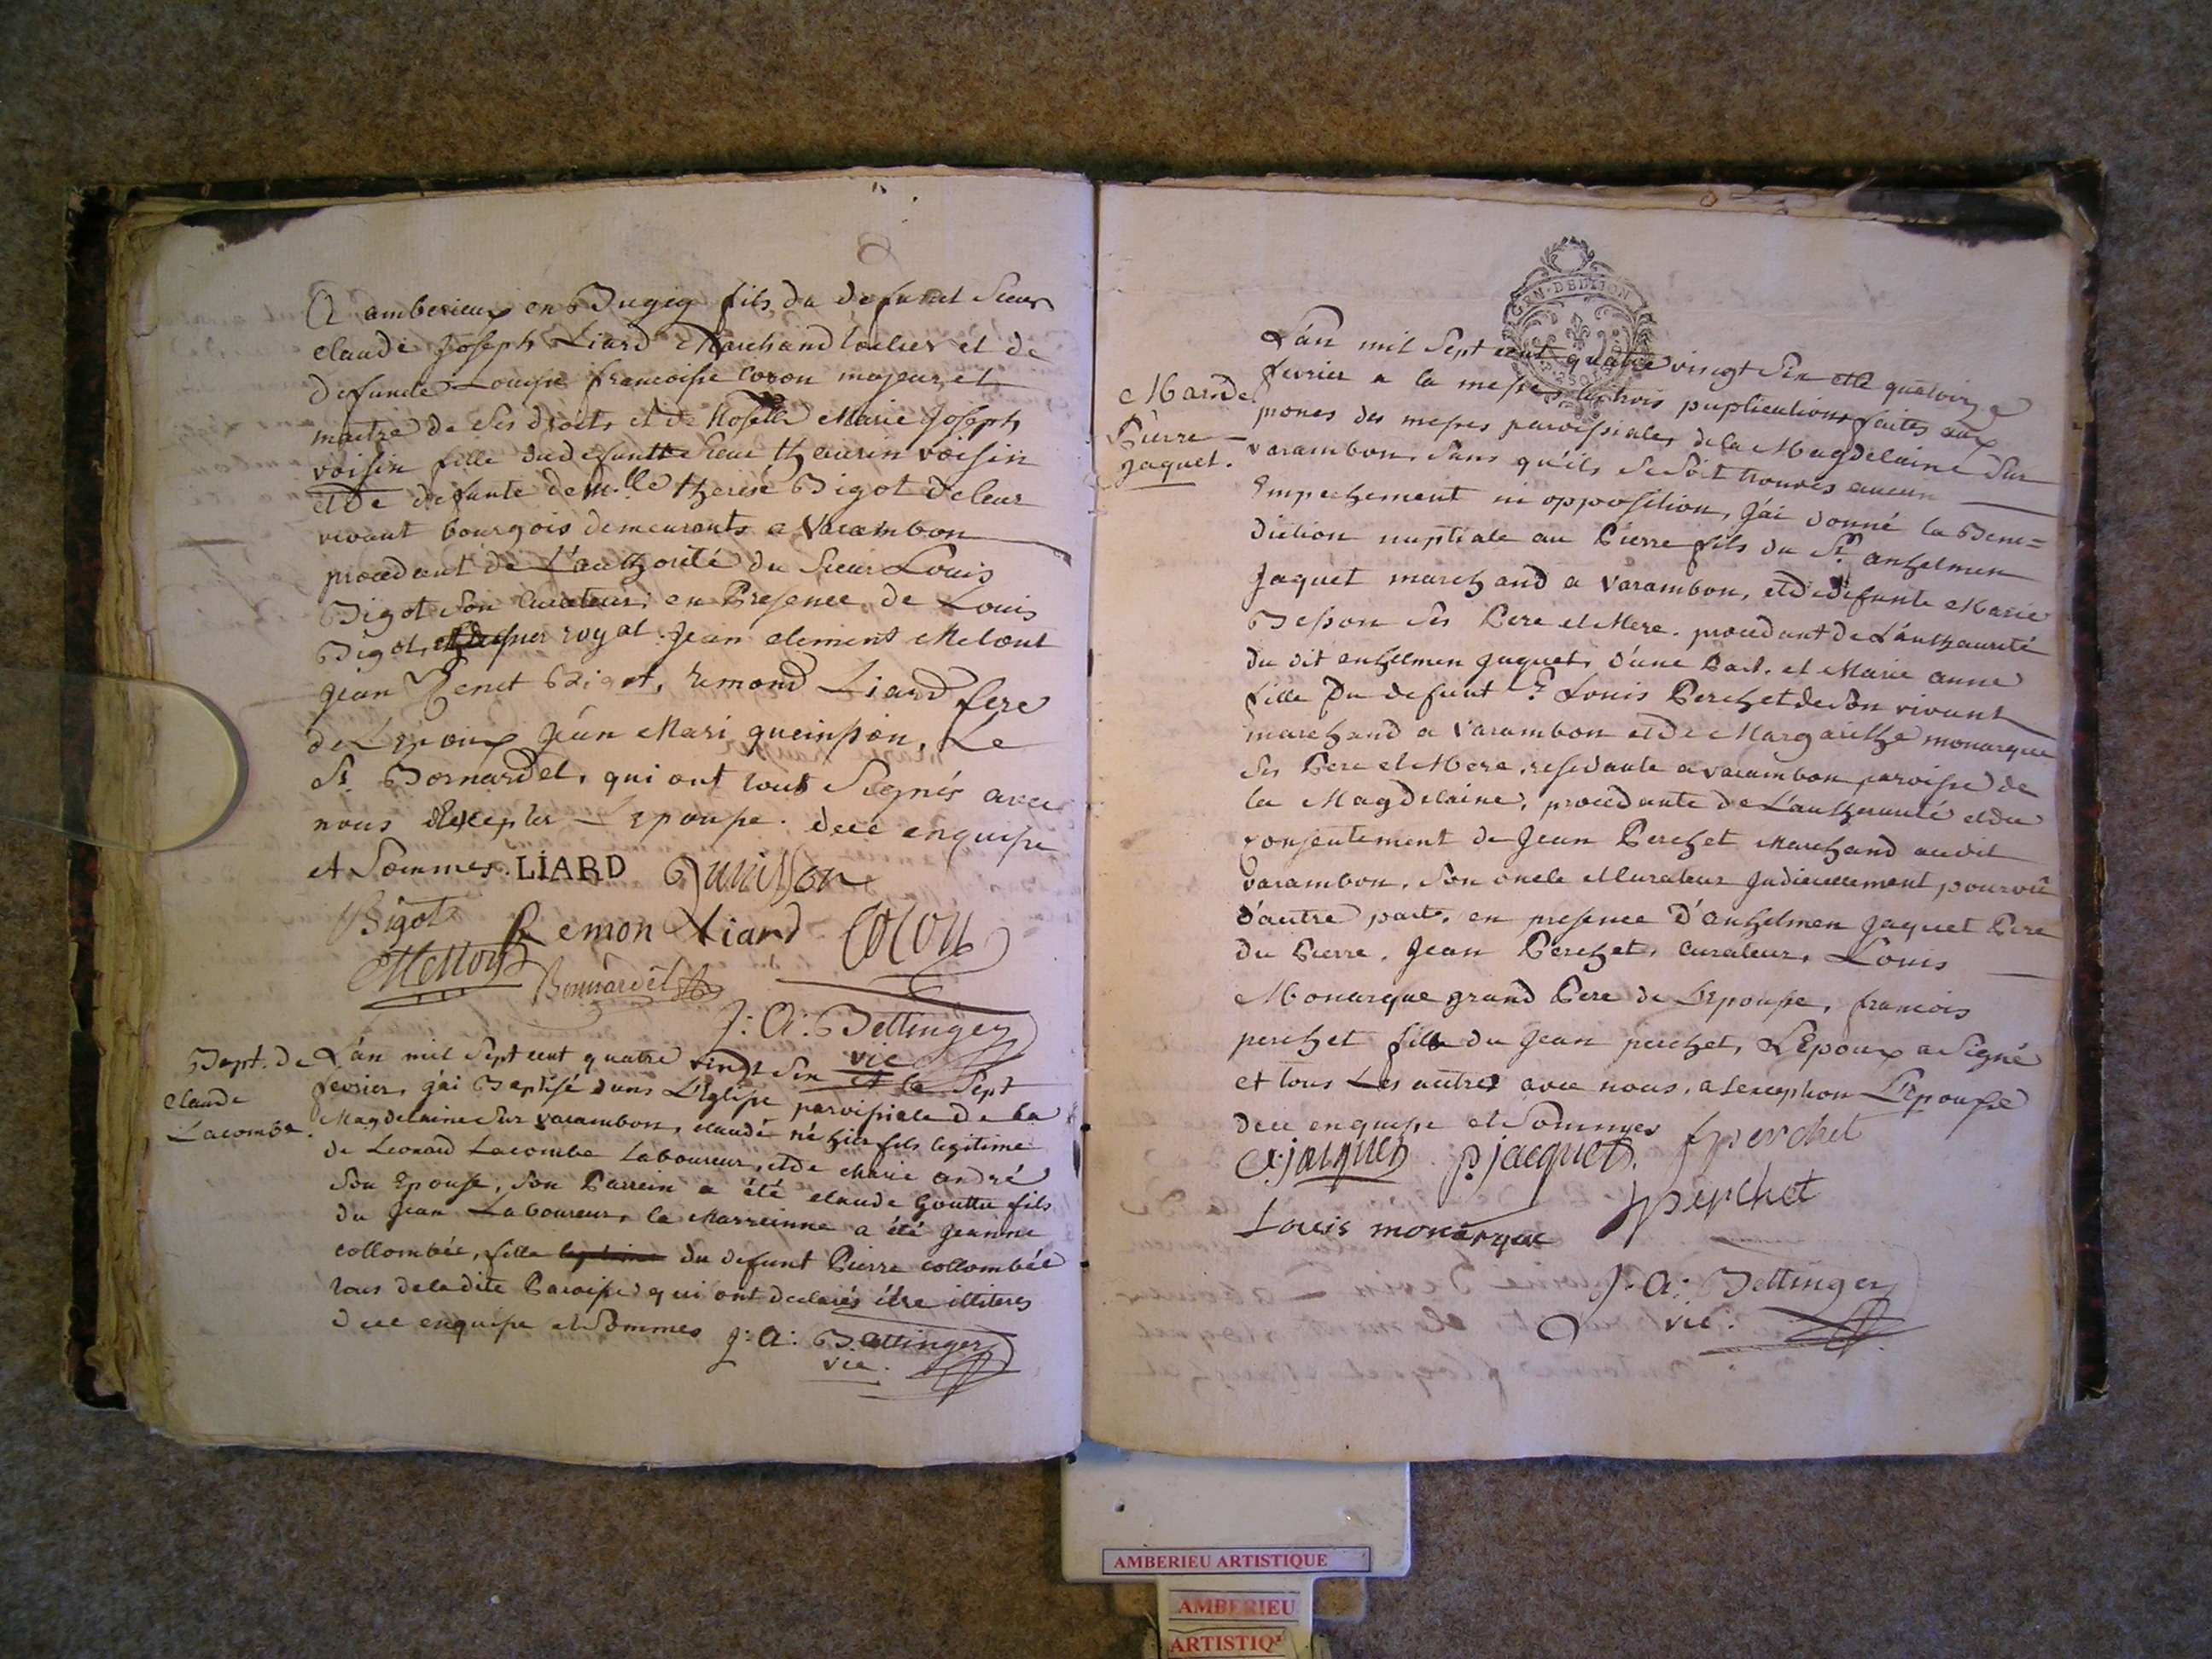 A amberieux en Bugey fils du defunct Sieur
claude Joseph Liard Marchand toilier et de
defuncte Louise francoise Coron majeur, et
maitre de ses droits et de Moselle Marie Joseph
voisin fille du defuntt Sieur thaurin voisin
et de defunte dem.lle therése Bigot de leur
vivant bourgois demeurants a Varambon
procedant de L'authorité du Sieur Louis
Bigot Son Curateur, en Presence de Louis
Bigot, royal. Jean clement
Jean Benet Bigot, Remond Liard frere
de L'Epoux Jéan Mari queinson, Le
Sr. Bornardel, qui ont tout Signés avec
nous Excepter L'epouse. de ce enquise
et Sommes. LIARD
Bigot Remon Liard Coron
Bonnardel
J: A: Bettinger
vic
Bapt. de
claude
Lacombe.
L'án mil Sept cent quatre vingt Six et le Sept
fevrier, j'ai Baptisé dans L'Eglise paroissiale de la
Magdelaine Sur varambon, claudé né hier fils legitime
de Leonard Lacombe Laboureur, et de Marie andré
Son Epouse, Son Parrein a été claude Gouttu fils
du Jean Laboureur, la Marreinne a été Jeanne
collombée, fille legitime du defunt Pierre collombée
tous de la dite Paroisse qui ont declarés étre illiteres
de ce enquise et Sommes J: A: Bettinger
vic.
GEN. DE DIJON
Mar. de
Pierre
Jaquet.
L'án mil Sept cent quatre vingt Six et le quatorze
fevrier a la messe, les trois puplications faites aux
prones des messes paroissiales de la Magdelaine Sur
varambon, Sans qu'ils Se Soit trouvés aucun
Empechement ni opposition, j'ai donné la Bene=
diction nuptiale au Pierre fils du Sr. anhelmen
Jaquet marchand a Varambon, et de defunte Marie
Besson Ses Pere et Mere. procedant de L'authaurité
du dit anhelmen Jaquet, d'une Part. et Marie anne
fille Du defunt Sr. Louis Perchet de Son vivant
marchand a Varambon et de Margarithe monarque
Ses Pere et Mere, residante a varambon paroisse de
la Magdelaine, procedante de L'authaurité et du
consentement de Jean Perchet Marchand audit
Varambon, Son oncle et Curateur Judiciellement pourvû
d'autre part, en presence d'anhelmen Jaquet Pere
du Pierre, Jean Perchet, curateur, Louis
Monarque grand Pere de L'Epouse, francois
perchet fils du Jean perchet, L'Epoux a Signé
et tous Les autres avec nous, a l'exception L'Epouse
de ce enquise et Sommes
A: jacquet p: jacquet. f perchet
J perchet
Louis monarque
J: A: Bettinger
vic.
AMBERIEU ARTISTIQUE
AMBERIEU
ARTISTIQ